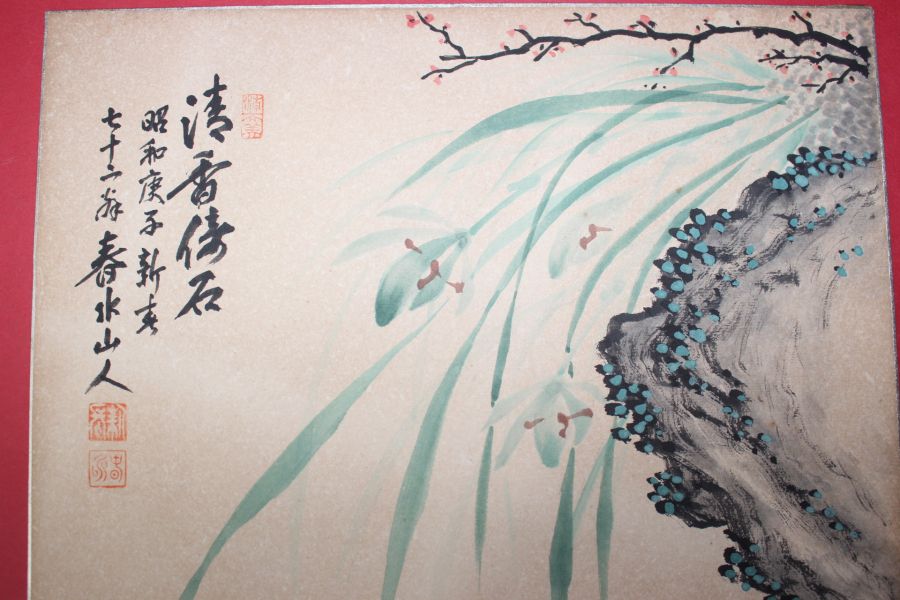 清香倚石
昭和庚子新春
七十二齢 春水山人